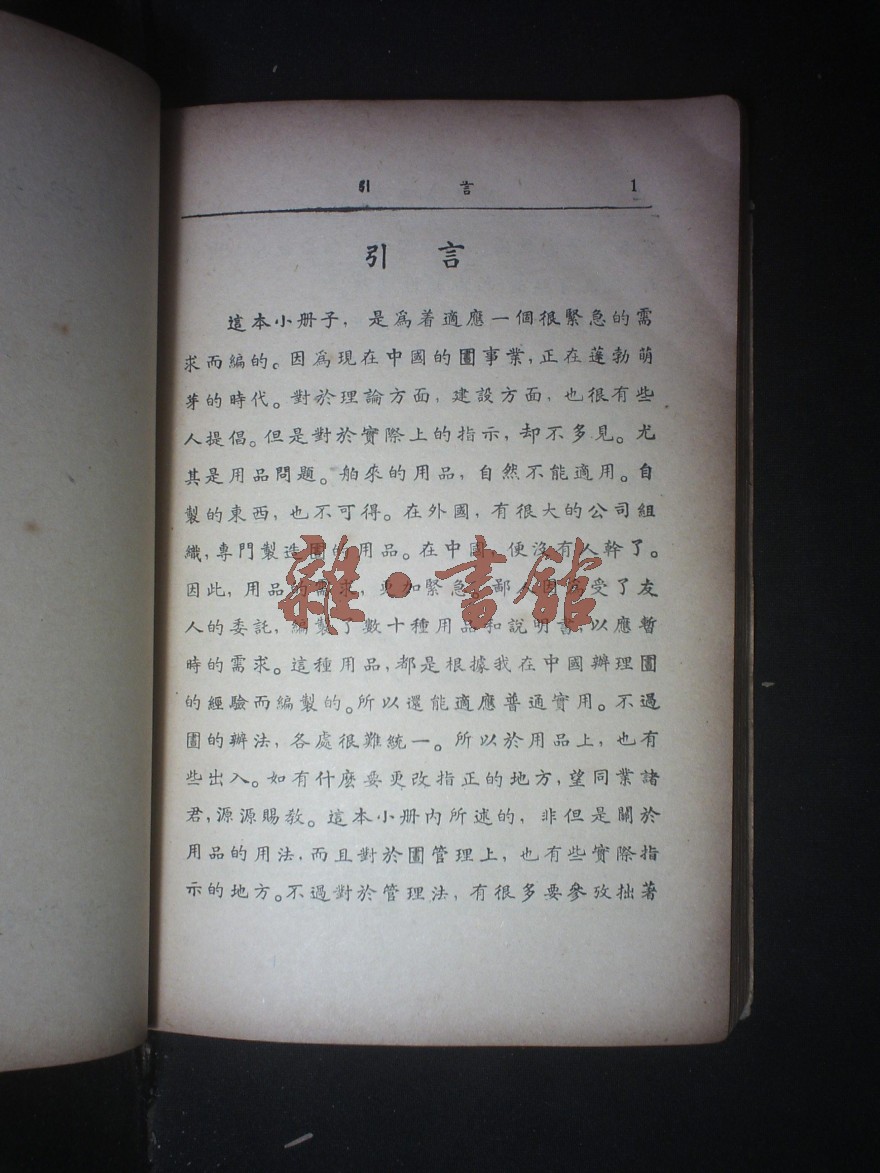 引言 1
引言
這本小册子，是爲着適應一個很緊急的需
求而編的。因爲現在中國的圕事業，正在蓬勃萌
芽的時代。對於理論方面，建設方面，也很有些
人提倡。但是對於實際上的指示，却不多見。尤
其是用品問題。舶來的用品，自然不能適用。自
製的東西，也不可得。在外國，有很大的公司組
織，專門製造圕的用品。在中國，便沒有人幹了。
因此，用品的需求，更加緊急。鄙人因爲受了友
人的委託，編製了數十種用品和說明書，以應暫
時的需求。這種用品，都是根據我在中國辦理圕
的經驗而編製的。所以還能適應普通實用。不過
圕的辦法，各處很難統一。所以於用品上，也有
些出入。如有什麽要更改指正的地方，望同業諸
君，源源賜敎。這本小册內所述的，非但是關於
用品的用法，而且對於圕管理上，也有些實際指
示的地方。不過對於管理法，有很多要參攷拙著
雜·書館